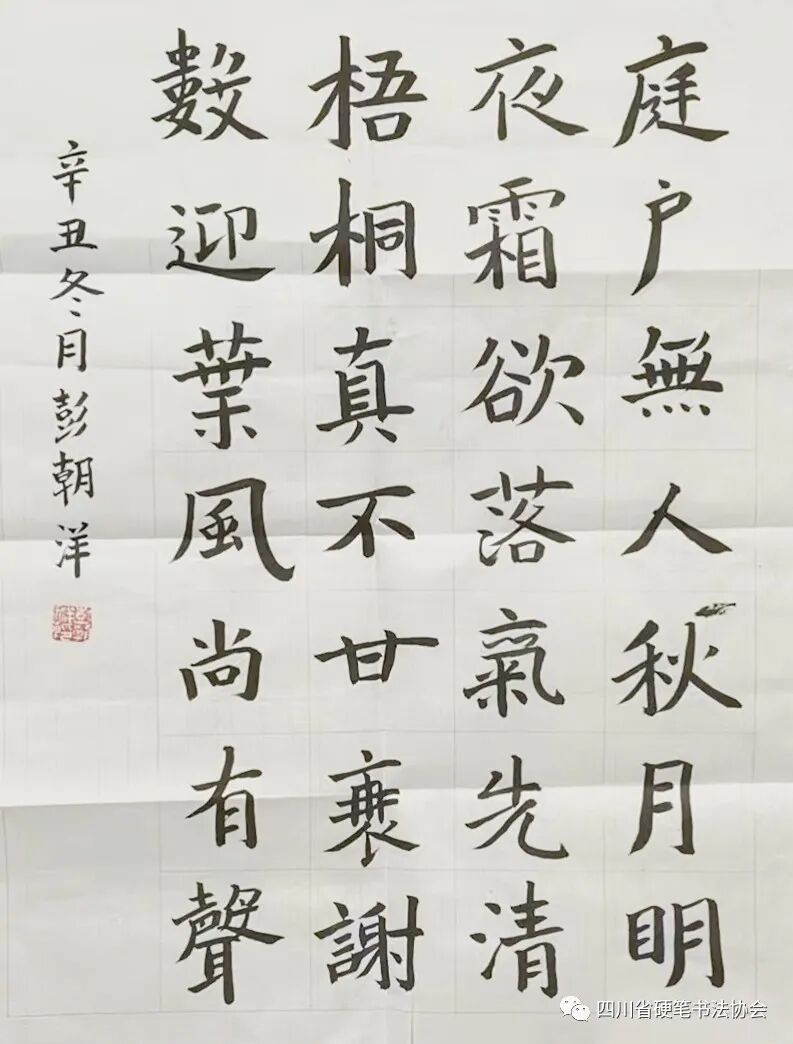 庭戶無人秋月明
夜霜欲落氣先清
梧桐真不甘衰謝
數迎葉風尚有聲
辛丑冬月彭朝洋
四川省硬笔书法协会